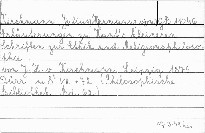 Kirchmann, Julius Hermann von, 
Erläuterungen zu Kant's kleineren
Schriften zur Ethik und Religionsphiloso-
phie
von J. H. v. Kirchmann. Leipzig, 1875
(Philosophische
Bibliothek. Bd.